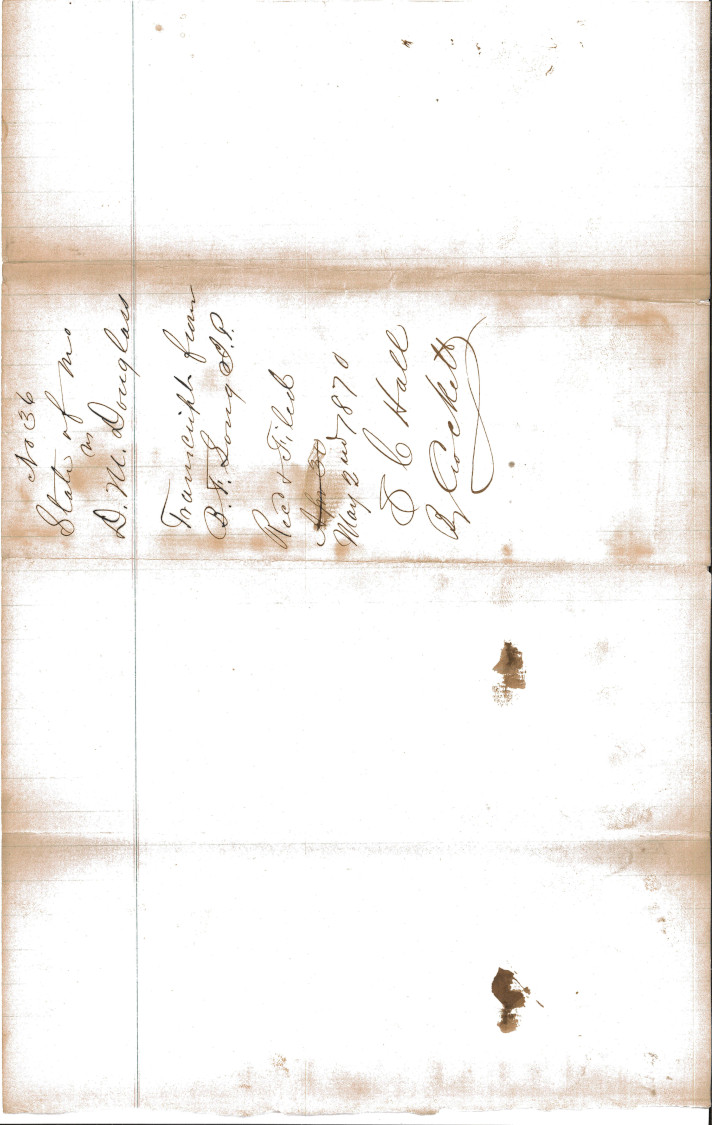 No 36
State of Mo
vs
D. M. Douglass
Transcript from
B. F. Long J.P.
Recd & Filed
Apr 30
May 2nd 1870
E C Hall
By Crockett